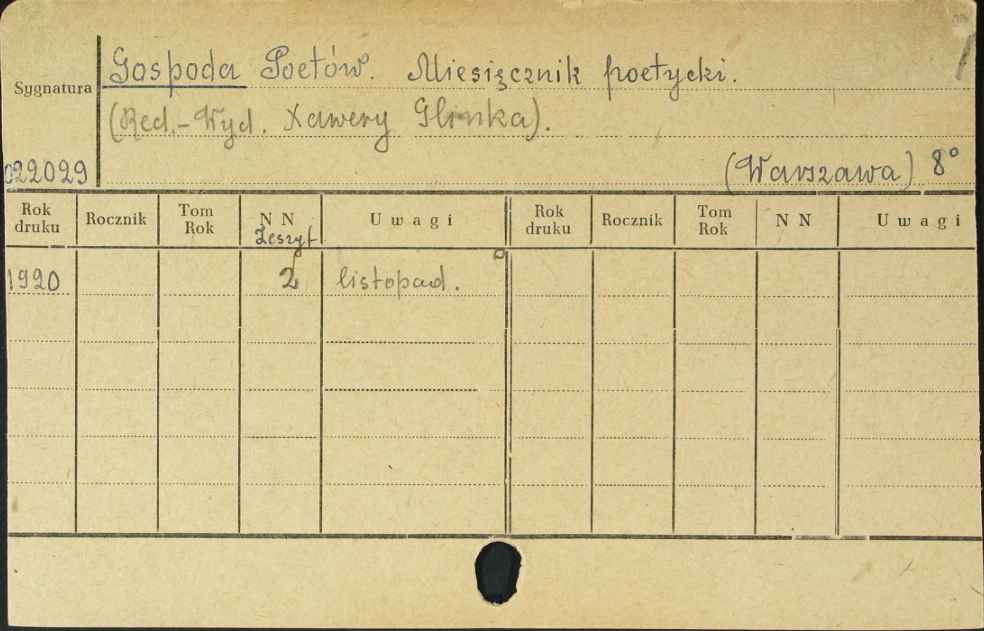 Gospoda Poetów. Miesięcznik poetycki.
Sygnatura
(Red.-Wyd. Xawery Glinka).
022029
(Warszawa) 8°
Rok druku Rocznik Tom Rok N N Zeszyt Uwagi Rok druku Rocznik Tom Rok N N Uwagi
1920 2 listopad.